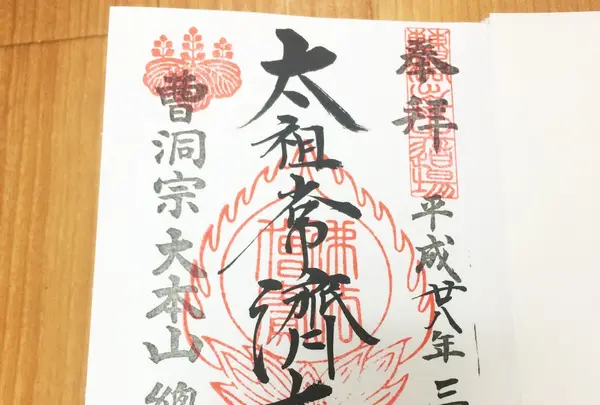 奉拝
平成廿八年三
太祖常濟大
曹洞宗大本山總